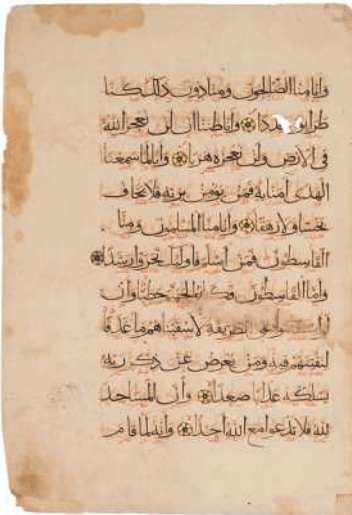 وانا منا الصالحون ومنا دون ذلك كنا
طرايق قددا وانا ظننا ان لن نعجز الله
في الارض ولن نعجزه هربا وانا لما سمعنا
الهدى امنا به فمن يؤمن بربه فلا يخاف
بخسا ولا رهقا وانا منا المسلمون ومنا
القاسطون فمن اسلم فاولئك تحروا رشدا
واما القاسطون فكانوا لجهنم حطبا وان
الطريقة لاسقيناهم ما غدقا
لنفتنهم فيه ومن يعرض عن ذكر ربه
يسلكه عذابا صعدا وان المساجد
لله فلا تدعوا مع الله احدا وانه لما قام